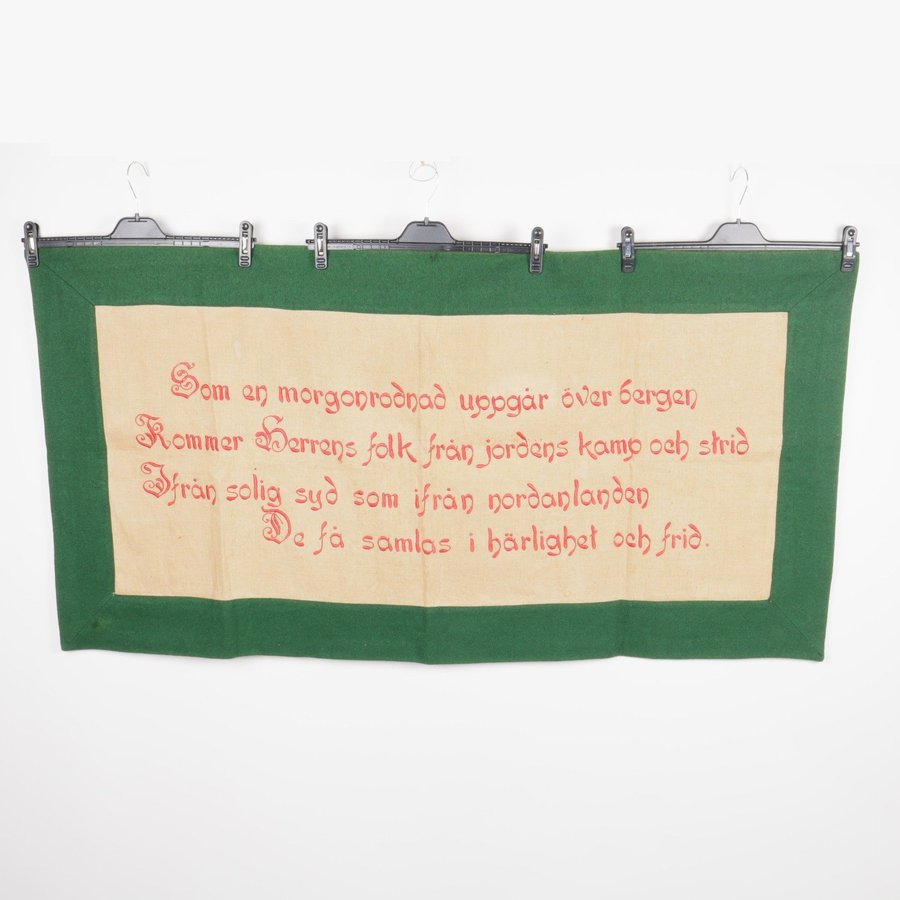 Som en morgonrodnad uppgår över bergen
Kommer Herrens folk från jordens kamp och strid
Ifrån solig syd som ifrån nordanlanden
De få samlas i härlighet och frid.